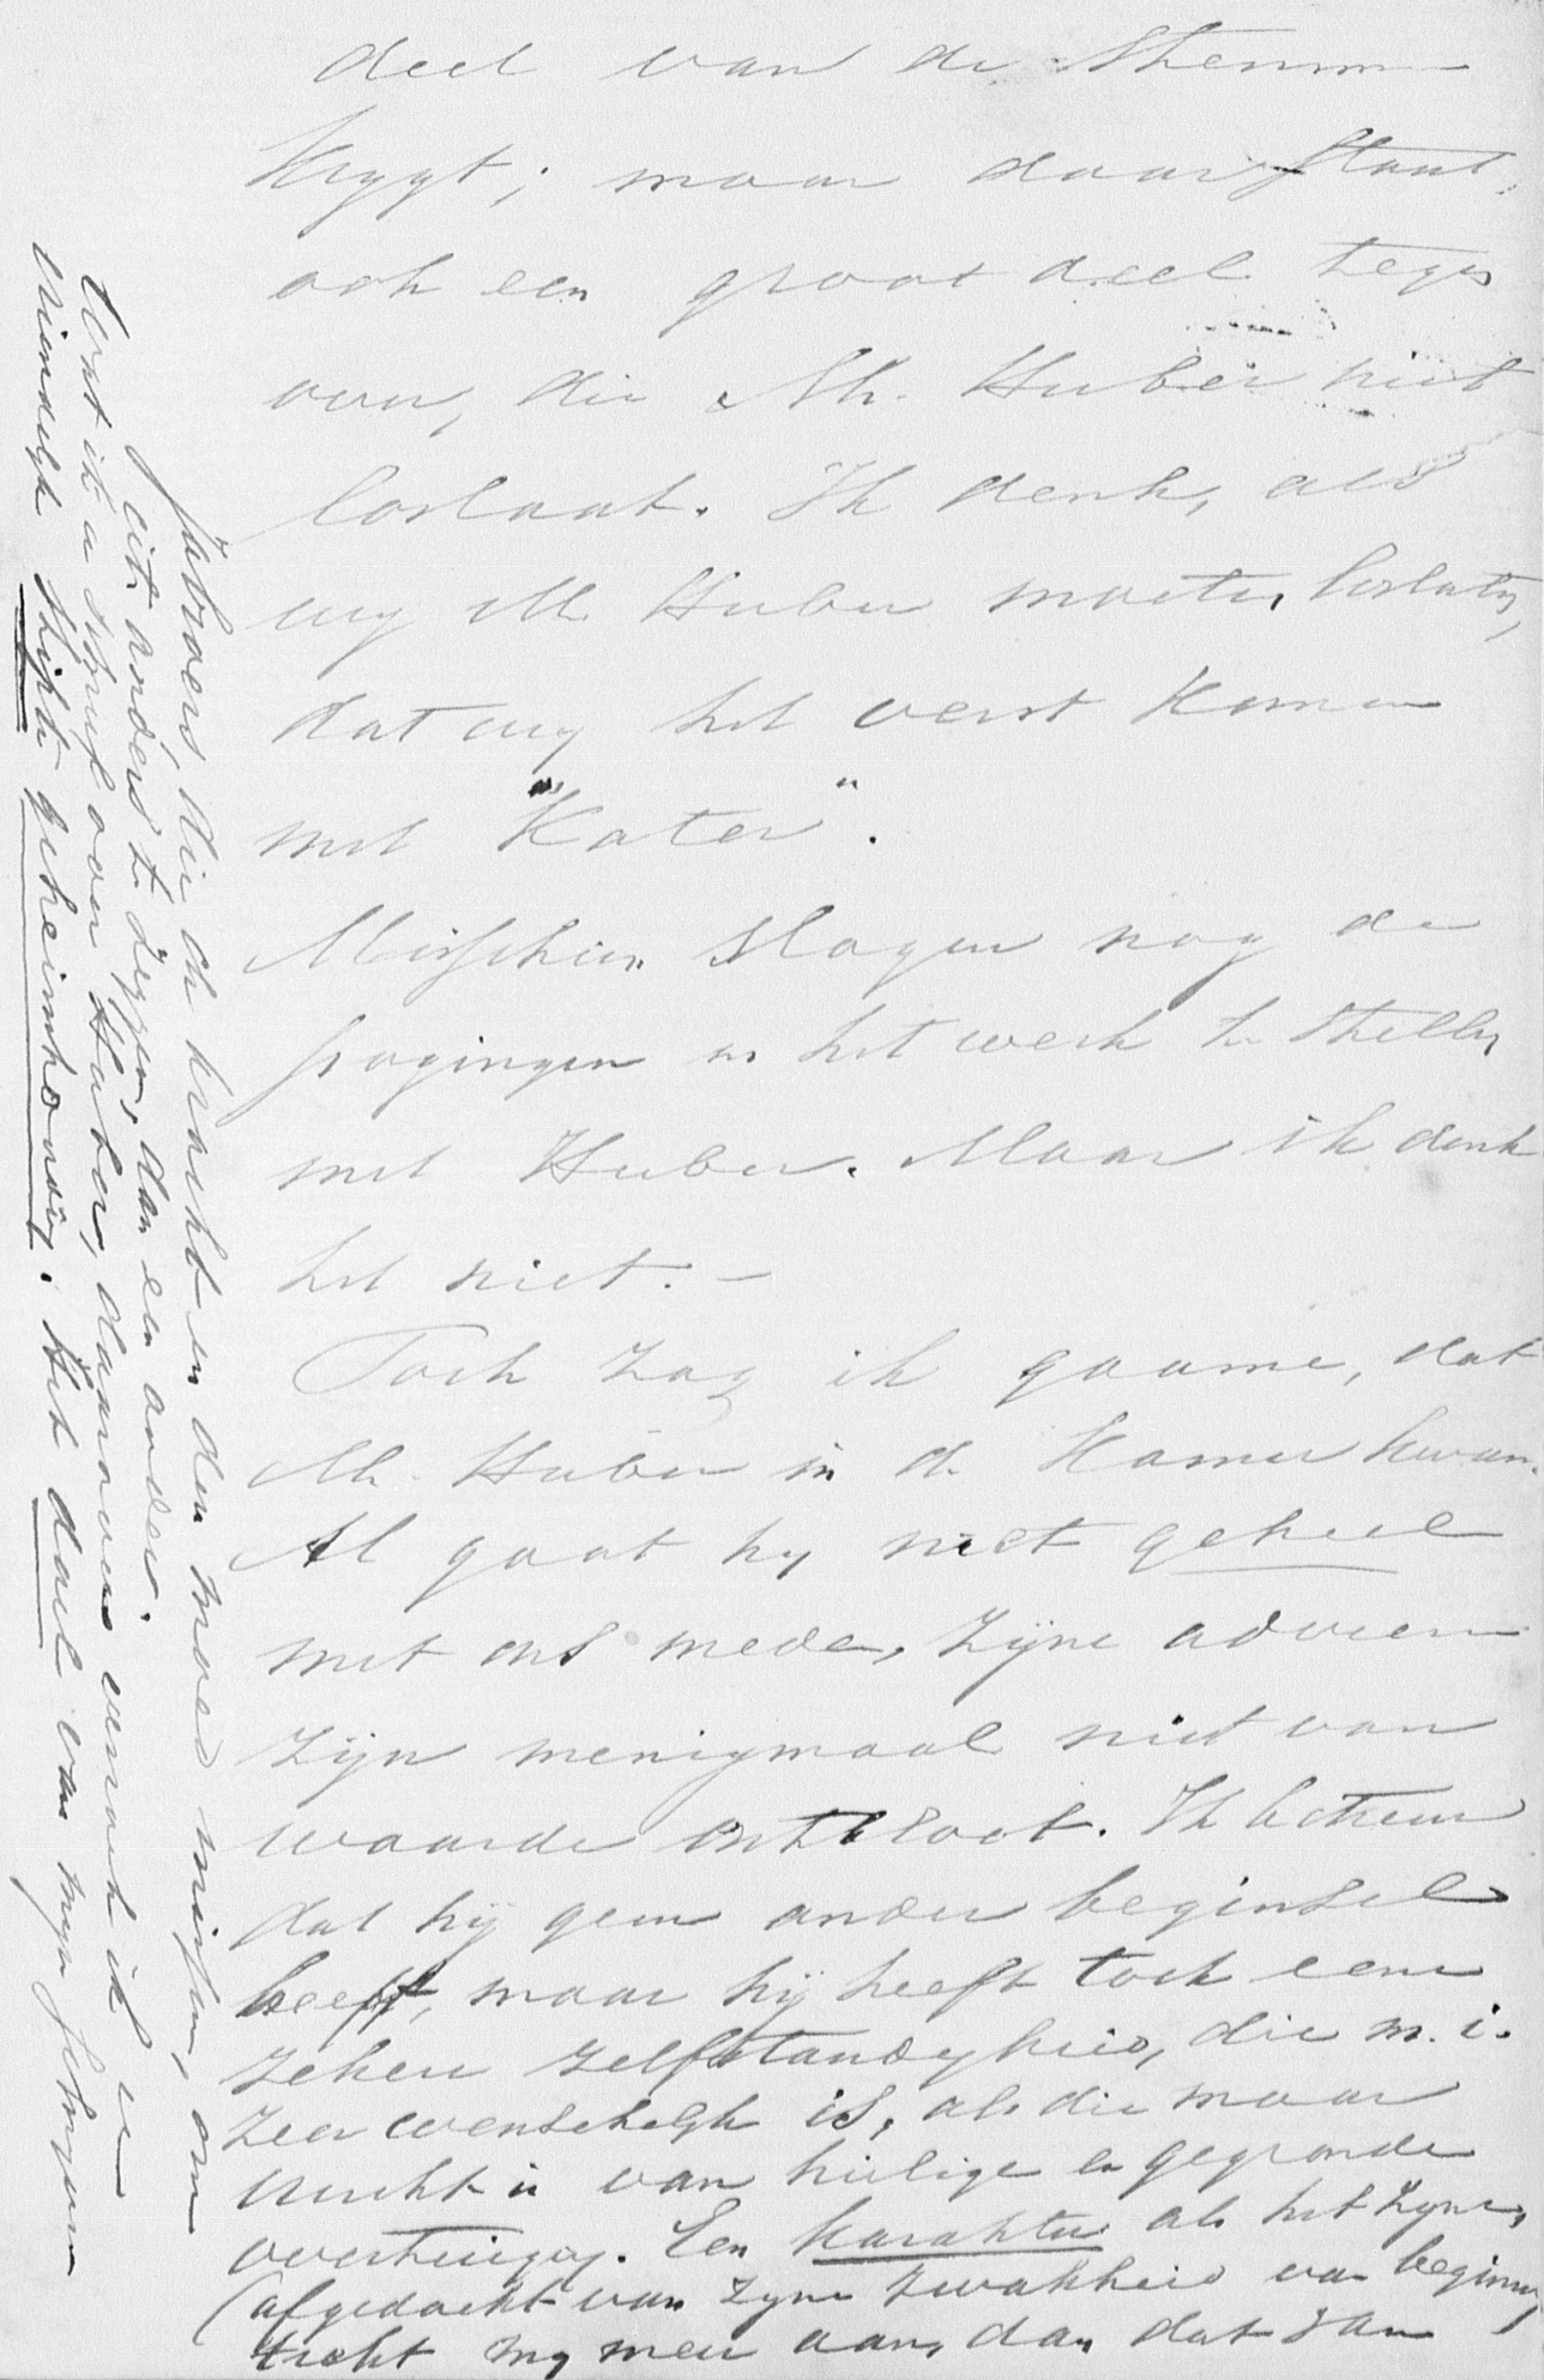 deel van de stemmen
krygt; maar daar staat
ook een groot deel tegen
over, die Mr. Huber niet
loslaat. Ik denk, als
wy Mr. Huber moeten loslaten,
dat wy het verst komen
met "Kater".
Misschien slagen nog de
pogingen in het werk te stellen
met Huber. Maar ik denk
het niet. -
Toch zag ik gaarne, dat
Mr. Huber in de Kamer kwam.
Al gaat hy niet geheel
met ons mede, zijne adviezen
zijn menigmaal niet van
waarde ontbloot. Ik betreur
dat hij geen ander beginsel
heeft, maar hij heeft toch eene
zekere zelfstandigheid, die m. i.
zeer wenschelyk is, als die maar
vrucht is van heilige en gegronde
overtuiging. Een karakter als het zyne,
(afgedacht van zyne zwakheid van beginsel)
trekt my meer aan, dan dat van
jabroers, die de kracht en den moed missen, om
eit anders te zeggen, dan een ander.
Uit ik u schreef over Huber, daarover verzoek ik u
vriendelyk stipte geheimhouding. Het doel van myn schryven